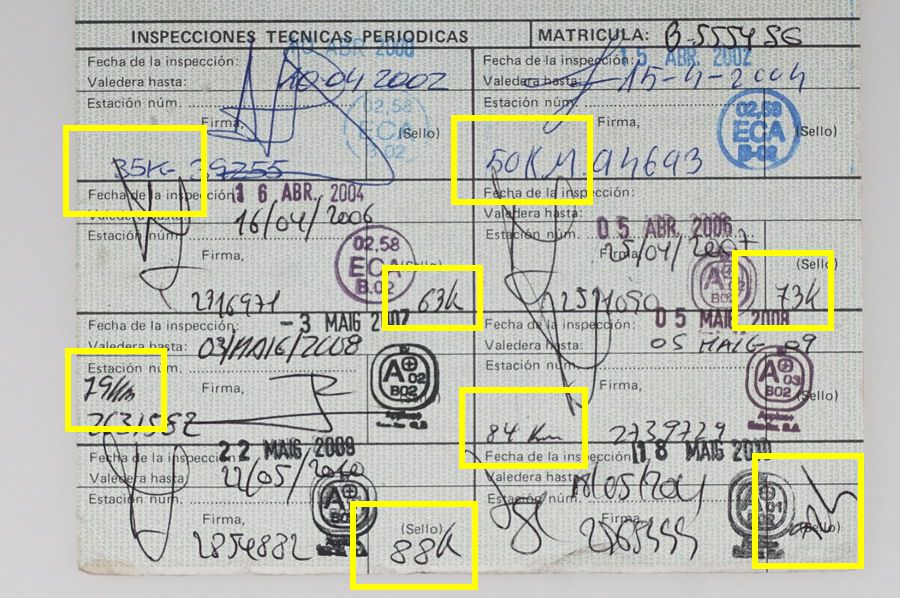 INSPECCIONES TECNICAS PERIODICAS
MATRICULA: B-5554SG
10 ABR 2000
Fecha de la inspección:
Valedera hasta: 10.04.2002
Estación núm.
Firma,
02.58
ECA
B.02
(Sello)
35K 39255
15 ABR. 2002
Fecha de la inspección:
Valedera hasta: 15-4-2004
Estación núm.
Firma,
02.58
ECA
B-02
(Sello)
50KM 94693
Fecha de la inspección: 16 ABR. 2004
Valedera hasta: 16/04/2006
Estación núm.
Firma,
02.58
ECA
B.02
(Sello)
2316971 63K
Fecha de la inspección:
Valedera hasta:
05 ABR. 2006
Estación núm. /04/2007
Firma,
B02
(Sello)
73K
Fecha de la inspección: -3 MAIG 2007
Valedera hasta: 03/MAIG/2008
Estación núm.
A 02
B02
79Km
Firma,
2631582
Fecha de la inspección: 05 MAIG 2008
Valedera hasta: 05 MAIG 09
Estación núm.
A 03
B02
Firma,
(Sello)
84 Km 2739729
Fecha de la inspección: 22 MAIG 2009
Valedera hasta: 22/05/2010
Estación núm.
Firma,
(Sello)
2854882 88K
Fecha de la inspección: 18 MAIG 2010
Valedera hasta: 18/05/2011
Estación núm.
A 01
B02
Firma,
(Sello)